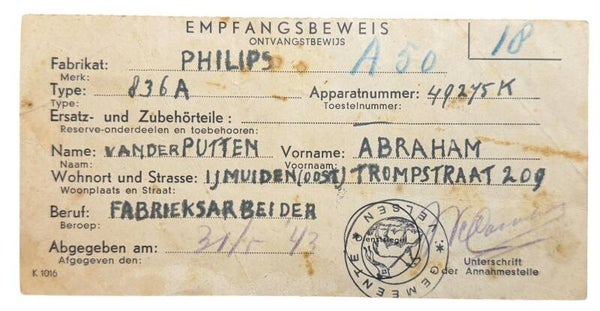 EMPFANGSBEWEIS
ONTVANGSTBEWIJS
A 50
18
Fabrikat: PHILIPS
Merk:
Type: 836A Apparatnummer: 49275K
Type: Toestelnummer:
Ersatz- und Zubehörteile: —
Reserve-onderdeelen en toebehooren:
Name: VAN DER PUTTEN Vorname: ABRAHAM
Naam: Voornaam:
Wohnort und Strasse: IJMUIDEN (OOST) TROMPSTRAAT 209
Woonplaats en Straat:
Beruf: FABRIEKSARBEIDER
Beroep:
Abgegeben am: 31/5 '43
Afgegeven den:
Dienstsiegel
GEMEENTE VELSEN
Unterschrift
der Annahmestelle
K 1016